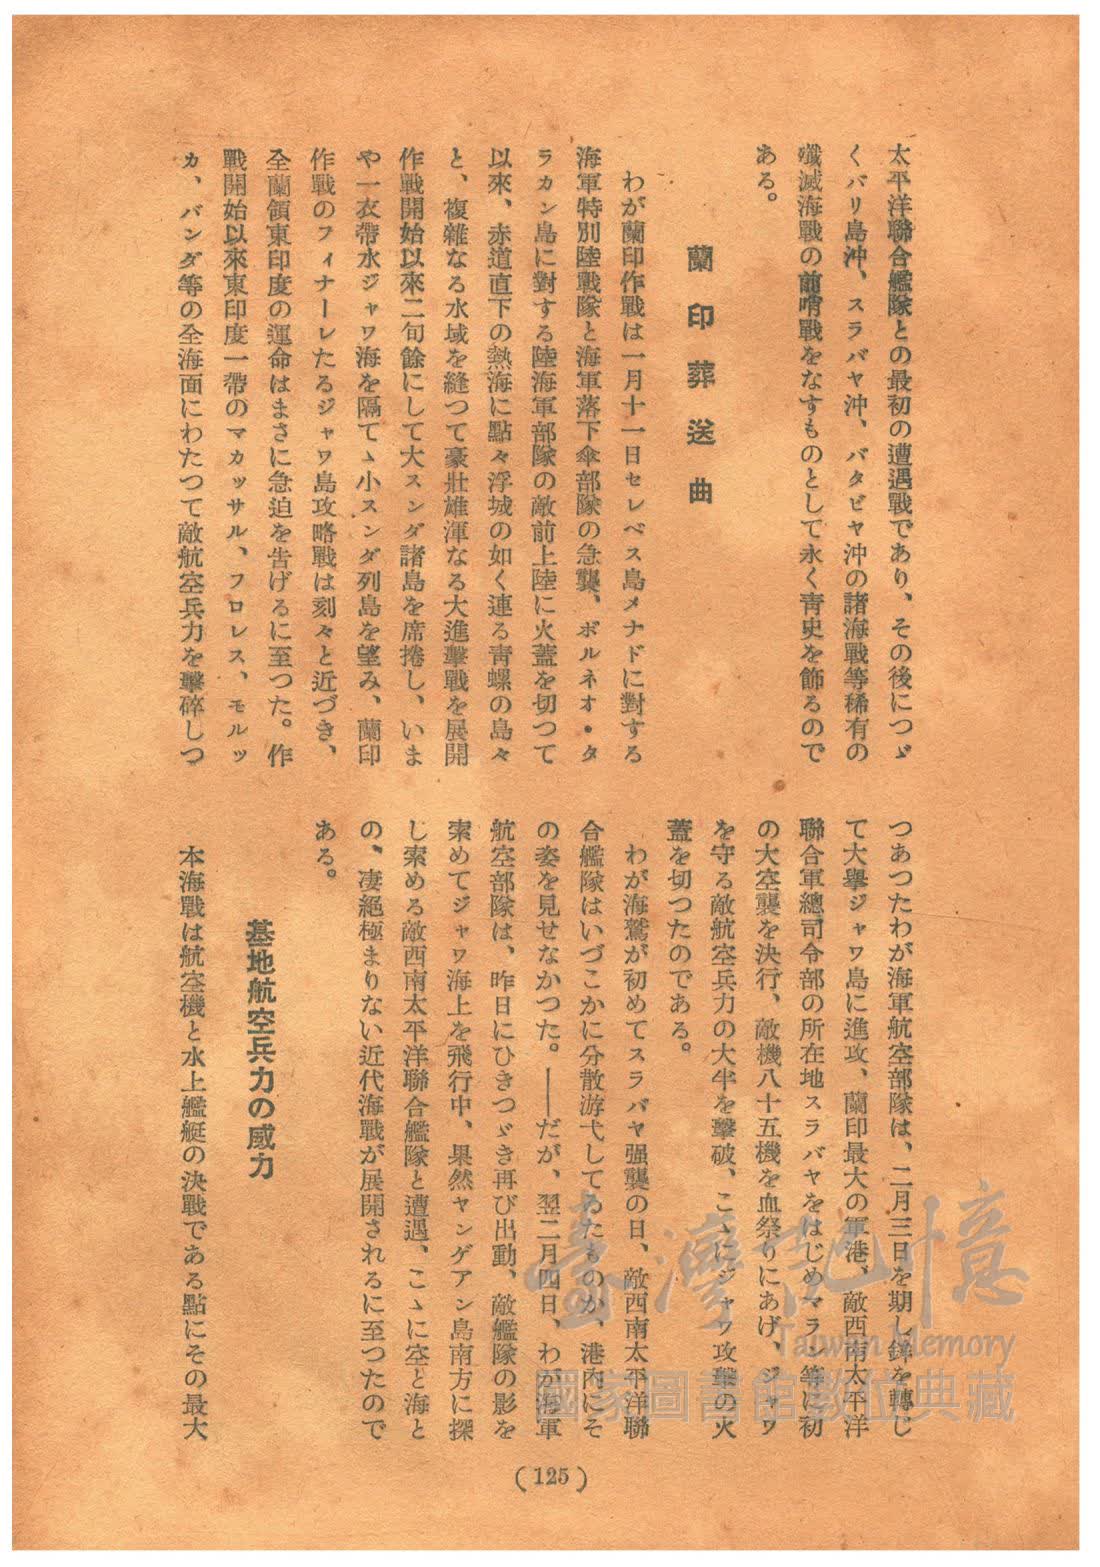 太平洋聯合艦隊との最初の遭遇戰であり、その後につゞ
くバリ島沖、スラバヤ沖、バタビヤ沖の諸海戰等稀有の
殲滅海戰の前哨戰をなすものとして永く靑史を飾るので
ある。
蘭印葬送曲
わが蘭印作戰は一月十一日セレベス島メナドに對する
海軍特別陸戰隊と海軍落下傘部隊の急襲、ボルネオ・タ
ラカン島に對する陸海軍部隊の敵前上陸に火蓋を切つて
以來、赤道直下の熱海に點々浮城の如く連る靑螺の島々
と、複雜なる水域を縫つて豪壯雄渾なる大進擊戰を展開
作戰開始以來二旬餘にして大スンダ諸島を席捲し、いま
や一衣帶水ジャワ海を隔てゝ小スンダ列島を望み、蘭印
作戰のフィナーレたるジャワ島攻略戰は刻々と近づき、
全蘭領東印度の運命はまさに急迫を告げるに至つた。作
戰開始以來東印度一帶のマカッサル、フロレス、モルッ
カ、バンダ等の全海面にわたつて敵航空兵力を擊碎しつ
つあつたわが海軍航空部隊は、二月三日を期し鉾を轉じ
て大擧ジャワ島に進攻、蘭印最大の軍港、敵西南太平洋
聯合軍總司令部の所在地スラバヤをはじめマラン等に初
の大空襲を決行、敵機八十五機を血祭りにあげ、ジャワ
を守る敵航空兵力の大半を擊破、こゝにジャワ攻擊の火
蓋を切つたのである。
わが海鷲が初めてスラバヤ强襲の日、敵西南太平洋聯
合艦隊はいづこかに分散游弋してゐたものか、港內にそ
の姿を見せなかつた。――だが、翌二月四日、わが海軍
航空部隊は、昨日にひきつゞき再び出動、敵艦隊の影を
索めてジャワ海上を飛行中、果然ヤンゲアン島南方に探
し索める敵西南太平洋聯合艦隊と遭遇、こゝに空と海と
の、凄絕極まりない近代海戰が展開されるに至つたので
ある。
基地航空兵力の威力
本海戰は航空機と水上艦艇の決戰である點にその最大
(125)
臺灣記憶
Taiwan Memory
國家圖書館數位典藏